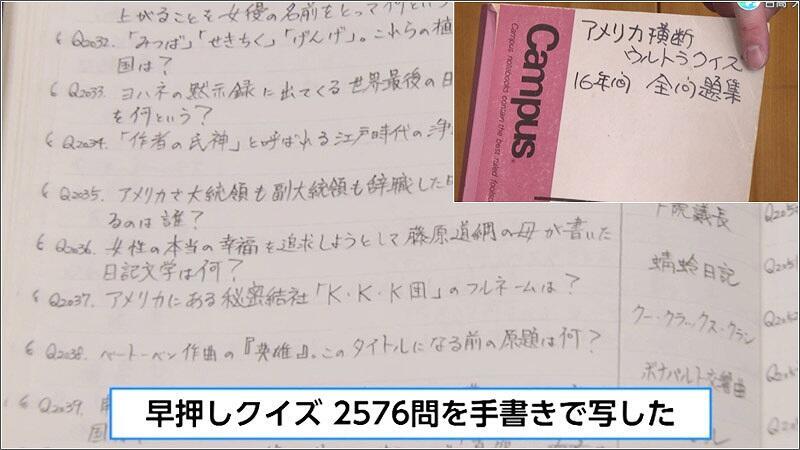 上がることを女優の名前をとって何という
6 Q2032.「みつば」「せきちく」「げんげ」。これらの植
国は？
6 Q2033. ヨハネの黙示録に出てくる世界最後の日
を何という？
6 Q2034.「作者の氏神」と呼ばれる江戸時代の浄
6 Q2035. アメリカで大統領も副大統領も辞職した
るのは誰？
6 Q2036. 女性の本当の幸福を追求しようとして藤原道綱の母が書いた
日記文学は何？
6 Q2037. アメリカにある秘密結社「K・K・K団」のフルネームは？
6 Q2038. ベートーベン作曲の『英雄』。このタイトルになる前の原題は何？
6 Q2039.
国
下院議長
蜻蛉日記
クー・クラックス・クラン
ボナパルト交響曲
Campus
Campus notebooks contain the best ruled foolscap
アメリカ横断
ウルトラクイズ
16年間 全問題集
早押しクイズ 2576問を手書きで写した